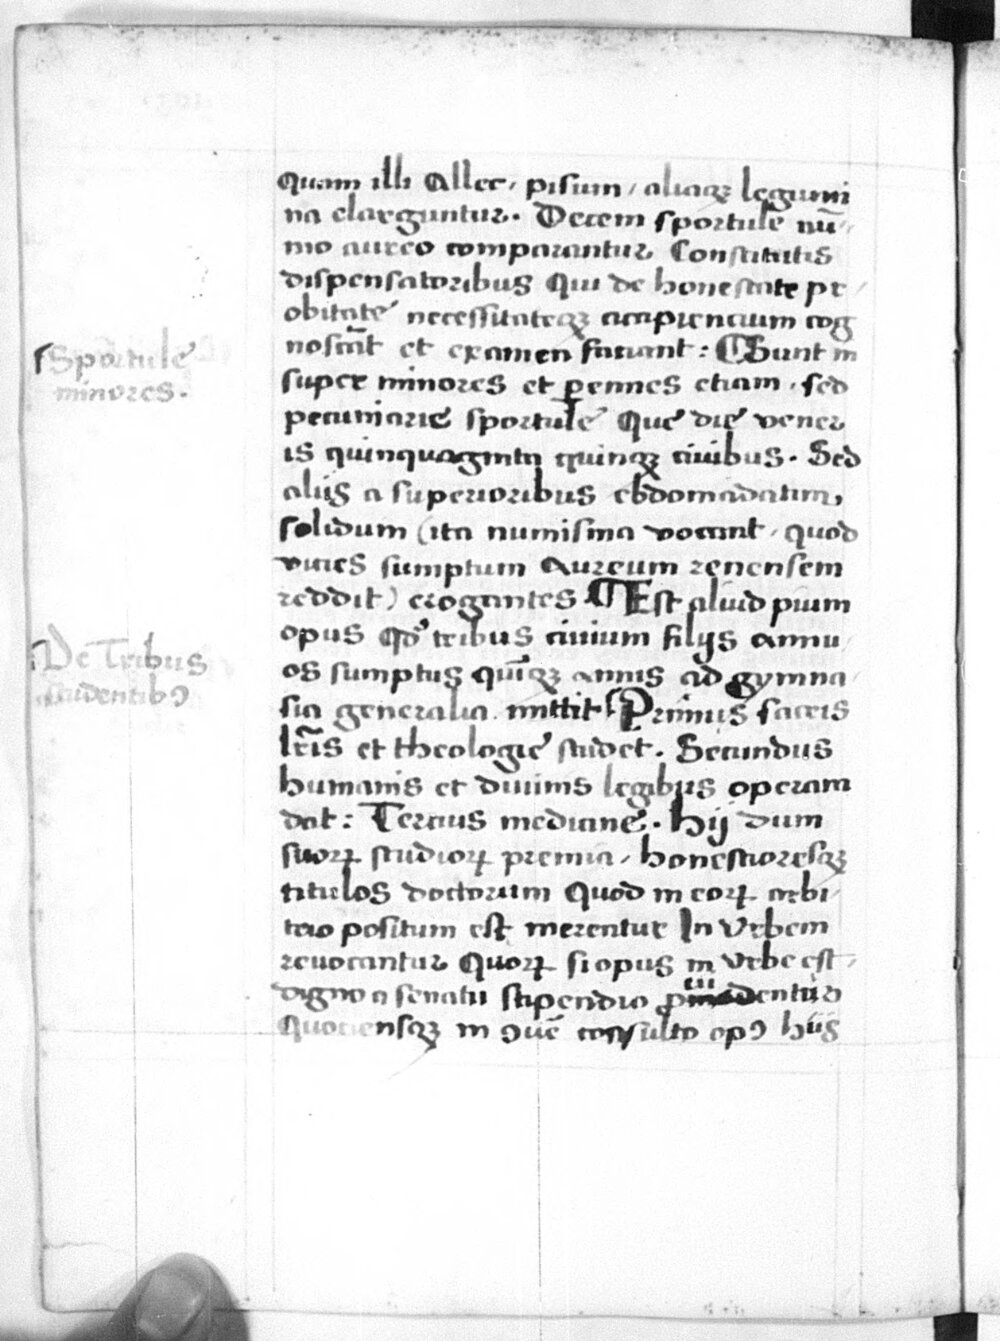 quam illi Allec, pisum, aliaqꝫ legumi
na elarguntur. Decem sportule nū,
mo aureo comparantur Constitutis
dispensatoribus Qui de honestate pr,
obitate necessitateqꝫ accipiencium cog
noscāt et examen faciant: ¶ Sunt in
super minores et ꝑennes etiam, sed
Sportule
minores.
pecuniarie sportule Que die vener
is quinquaginta quinqꝫ ciuibus. Sed
aliis a superioribus ebdomadatim,
solidum (ita numisma vocant, quod
vicies sumptum Aureum renensem
reddit) erogantes. ¶ Est aliud pium
opus Qd' tribus ciuium filijs annu,
De Tribus
studentibꝯ
os sumptus quīqꝫ annis ad gymna,
sia generalia mittit Primus sacris
lr̄is et theologie studet. Secundus
humanis et diuinis legibus operam
dat: Tercius medicine. Hij dum
suorꝝ studiorꝝ premia, honestioresqꝫ
titulos doctorum Quod in eorꝝ arbi,
trio positum est merentur In Vrbem
reuocantur Quorꝝ si opus in Vrbe est,
digno a senatu stipendio
Quociensqꝫ in ꝯuē consulto opꝯ hiis